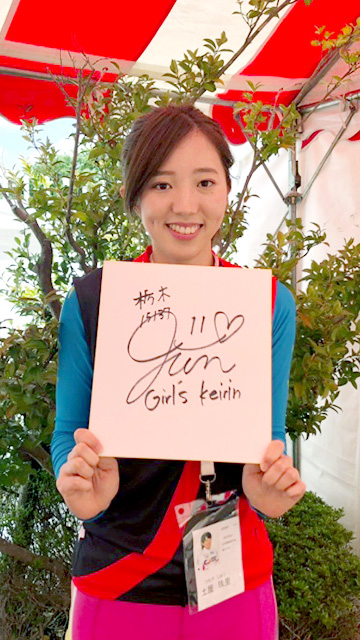 栃木
15137
Jun 11♡
Girl's Keirin
土屋 珠里